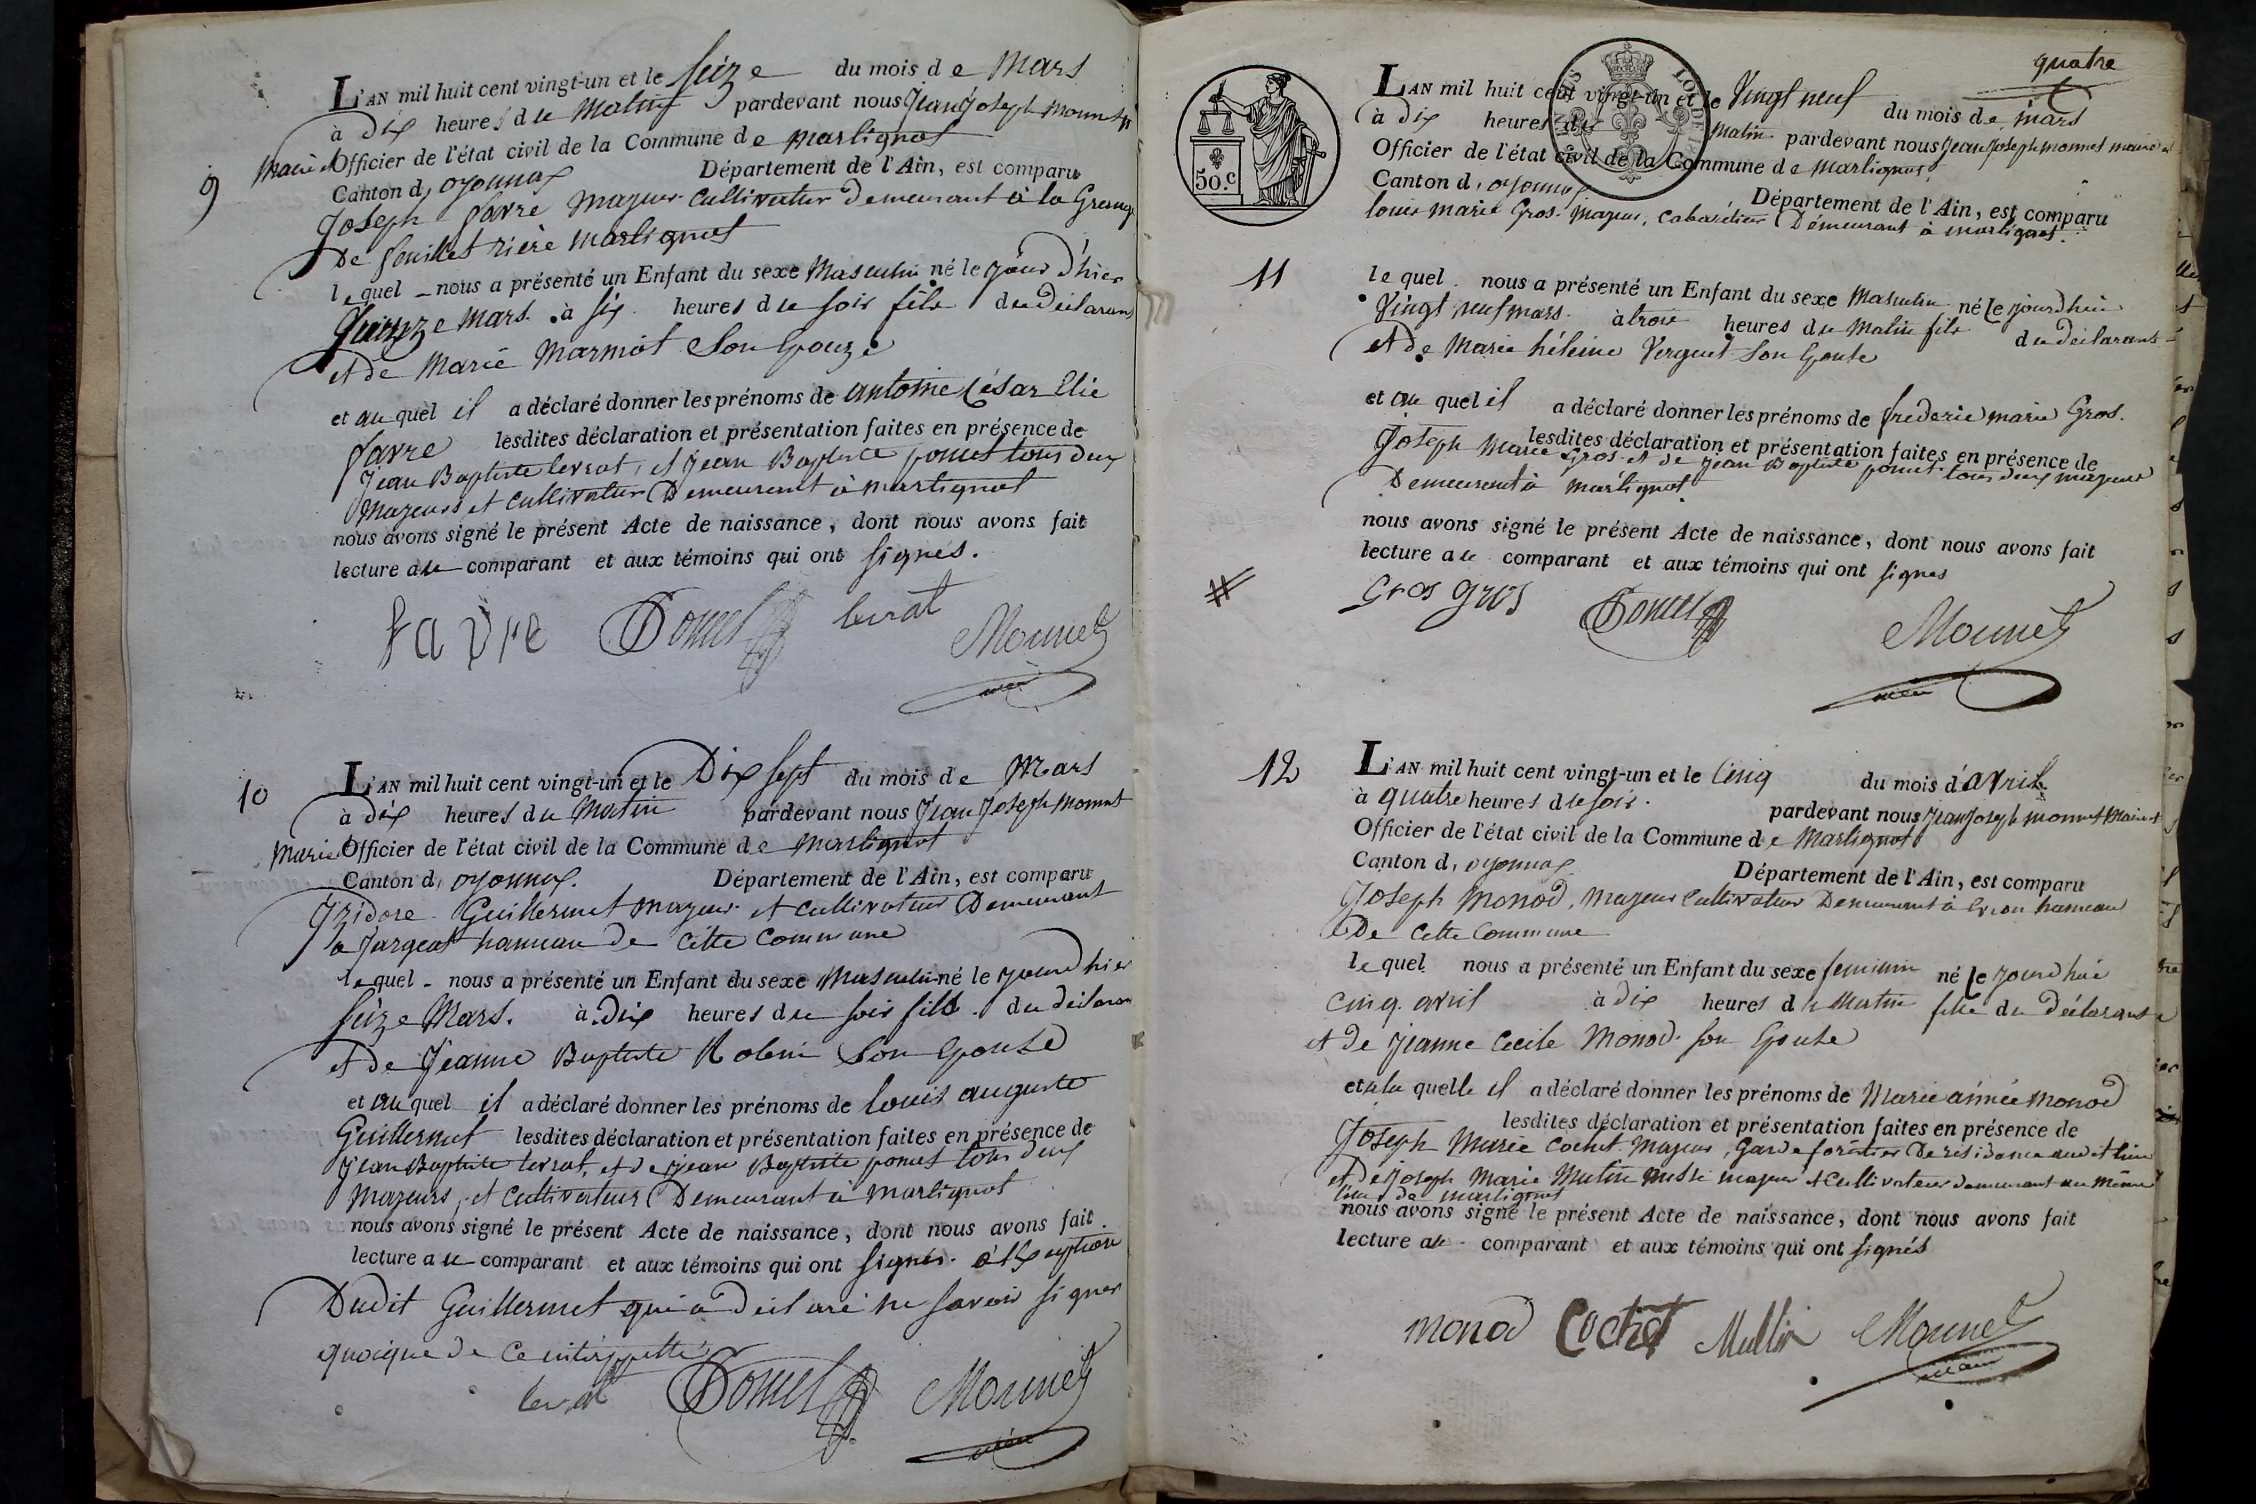 L'AN mil huit cent vingt-un et le Seize du mois de Mars
à Dix heures du Matin pardevant nous Jean Joseph Monnet
9
maire Officier de l'état civil de la Commune de martignat
Canton d'oyonnax Département de l'Ain, est comparu
Joseph favre Majeur Cultivateur Demeurant à la Grange
De rière Martignat
lequel nous a présenté un Enfant du sexe Masculin né le jour d'hier
Quinze Mars à six heures du soir fils du déclarant
et de Marie Marmot Son Epouze
et auquel il a déclaré donner les prénoms de antoine César Elie
favre lesdites déclaration et présentation faites en présence de
Jean Baptiste levrat, et Jean Baptiste poncet tous deux
Majeurs et cultivateurs Demeurant à martignat
nous avons signé le présent Acte de naissance, dont nous avons fait
lecture au comparant et aux témoins qui ont signés.
favre Poncet levrat Monnet
maire
10
L'AN mil huit cent vingt-un et le Dix sept du mois de Mars
à dix heures du Matin pardevant nous Jean Joseph Monnet
Maire Officier de l'état civil de la Commune de Martignat
Canton d'oyonnax. Département de l'Ain, est comparu
Izidore Guillermet majeur et cultivateur Demeurant
a hameau de cette commune
lequel nous a présenté un Enfant du sexe Masculin né le jour d'hier
seize Mars. à Dix heures du soir fils du déclarant
et de Jeanne Baptiste Robin Son Epouse
et auquel il a déclaré donner les prénoms de louis auguste
Guillermet lesdites déclaration et présentation faites en présence de
Jean Baptiste levrat, et de jean Baptiste poncet tous deux
Majeurs, et cultivateurs Demeurant à martignat
nous avons signé le présent Acte de naissance, dont nous avons fait
lecture au comparant et aux témoins qui ont signés à l'exeption
Dudit Guillermet qui a déclaré ne savoir signer
quoique de ce
levrat Poncet Monnet
maire
quatre
50.c
L'AN mil huit cent vingt-un et le Vingt neuf du mois de mars
à Dix heures du Matin pardevant nous Jean Joseph monnet maire
Officier de l'état civil de la Commune de Martignat
Canton d'oyonnax Département de l'Ain, est comparu
louis marie Gros Majeur, Cabaretier Demeurant à martignat.
11
lequel nous a présenté un Enfant du sexe Masculin né le jourdhui
Vingt neuf mars à trois heures du Matin fils du déclarant
et de Marie héleine Verguet Son Epouse
et auquel il a déclaré donner les prénoms de frederic marie Gros.
lesdites déclaration et présentation faites en présence de
Joseph Marie Gros et de Jean Baptiste poncet tous deux majeurs
Demeurant à martignat
nous avons signé le présent Acte de naissance, dont nous avons fait
lecture au comparant et aux témoins qui ont signés
Gros gros Poncet Monnet
maire
12
L'AN mil huit cent vingt-un et le Cinq du mois d'avril
à quatre heures du soir. pardevant nous Jean Joseph monnet Maire
Officier de l'état civil de la Commune de Martignat
Canton d'oyonnax Département de l'Ain, est comparu
Joseph Monod, Majeur Cultivateur Demeurant à hameau
De cette Commune
lequel nous a présenté un Enfant du sexe feminin né le jourdhui
cinq avril à dix heures du Matin fille du Déclarant
et de Jeanne Cecile Monod son Epouse
et a la quelle il a déclaré donner les prénoms de Marie aimée Monod
lesdites déclaration et présentation faites en présence de
Joseph Marie Cochet Majeur, Garde forêstier De résidence audit lieu
et de joseph Marie Mutin majeur et Cultivateur demeurant au même
lieu de martignat
nous avons signé le présent Acte de naissance, dont nous avons fait
lecture au comparant et aux témoins qui ont signés
monod Cochet Monnet
maire